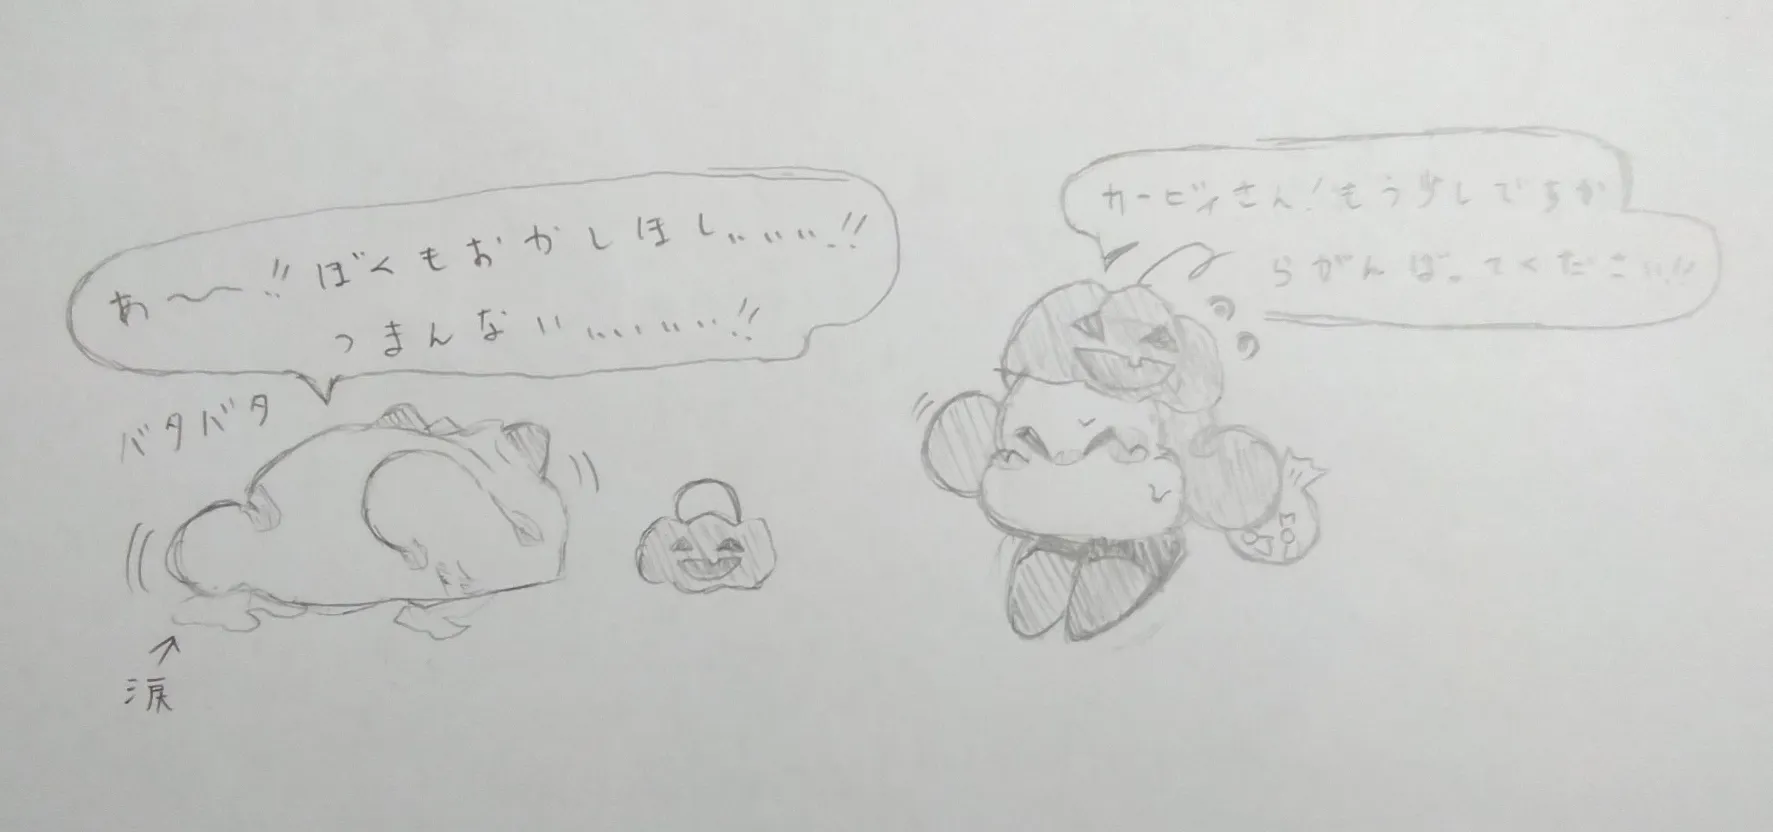 あ〜〜!!ぼくもおかしほしぃぃぃぃ!!
つまんないぃぃぃぃぃ!!
バタバタ
涙
カービィさん!もう少しですか
らがんばってください!!